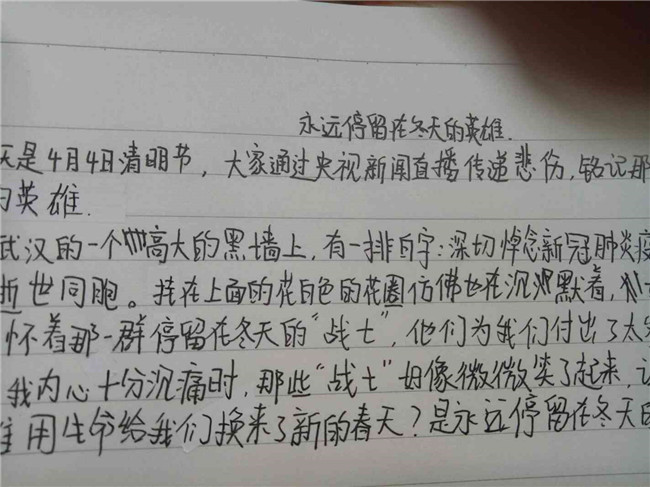 永远停留在冬天的英雄.
天是4月4日清明节，大家通过央视新闻直播传递悲伤，铭记那
的英雄.
武汉的一个高大的黑墙上，有一排白字：深切悼念新冠肺炎疫
逝世同胞。挂在上面的花白色的花圈仿佛也在沉默着，
怀着那一群停留在冬天的“战士”，他们为我们付出了太
我内心十分沉痛时，那些“战士”好像微微笑了起来，
用生命给我们换来了新的春天？是永远停留在冬天的